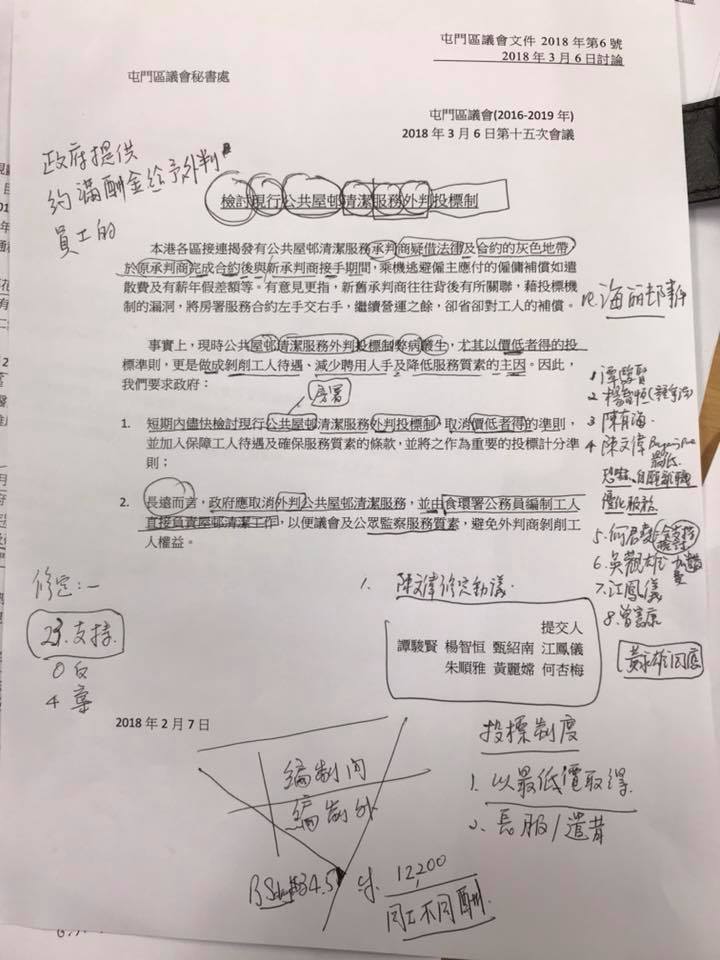 屯門區議會文件 2018 年第6號
2018 年 3 月 6 日討論
屯門區議會秘書處
屯門區議會(2016-2019 年)
2018 年 3 月 6 日第十五次會議
政府提供
約滿酬金給予外判
員工的
檢討現行公共屋邨清潔服務外判投標制
本港各區接連揭發有公共屋邨清潔服務承判商疑借法律及合約的灰色地帶
於原承判商完成合約後與新承判商接手期間，乘機逃避僱主應付的僱傭補償如遣
散費及有薪年假差額等。有意見更指，新舊承判商往往背後有所關聯，藉投標機
制的漏洞，將房署服務合約左手交右手，繼續營運之餘，卻省卻對工人的補償。
re. 海麗邨事件
事實上，現時公共屋邨清潔服務外判投標制弊病叢生，尤其以價低者得的投
標準則，更是做成剝削工人待遇、減少聘用人手及降低服務質素的主因。因此，
我們要求政府：
房署
1. 短期內儘快檢討現行公共屋邨清潔服務外判投標制，取消價低者得的準則，
並加入保障工人待遇及確保服務質素的條款，並將之作為重要的投標計分準
則；
2. 長遠而言，政府應取消外判公共屋邨清潔服務，並由食環署公務員編制工人
直接負責屋邨清潔工作，以便議會及公眾監察服務質素，避免外判商剝削工
人權益。
1 譚駿賢
2 楊智恒
3 陳有海
4 陳文偉
自願離職
優化服務
5. 何君堯
6. 吳觀鴻
7. 江鳳儀
8. 曾憲康
黃永雄回應
修定：—
23. 支持.
0 反
4 棄
1. 陳文偉修定動議.
提交人
譚駿賢 楊智恒 甄紹南 江鳳儀
朱順雅 黃麗嫦 何杏梅
2018 年 2 月 7 日
編制內
編制外
投標制度
1. 以最低價取得.
2. 長服/遣散
12,200
同工不同酬.